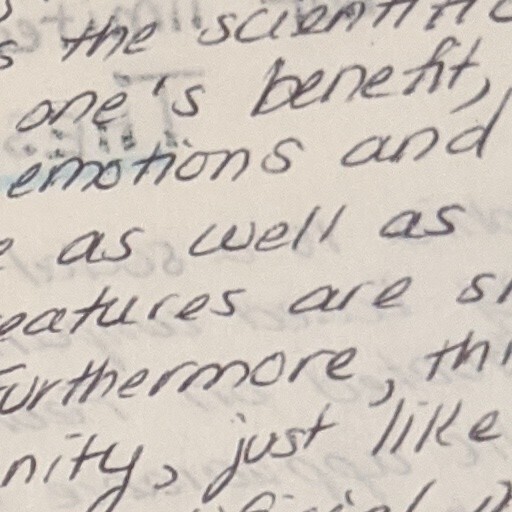 the scientific
one's benefit,
emotions and
as well as
eatures are
urthermore,
nity, just like